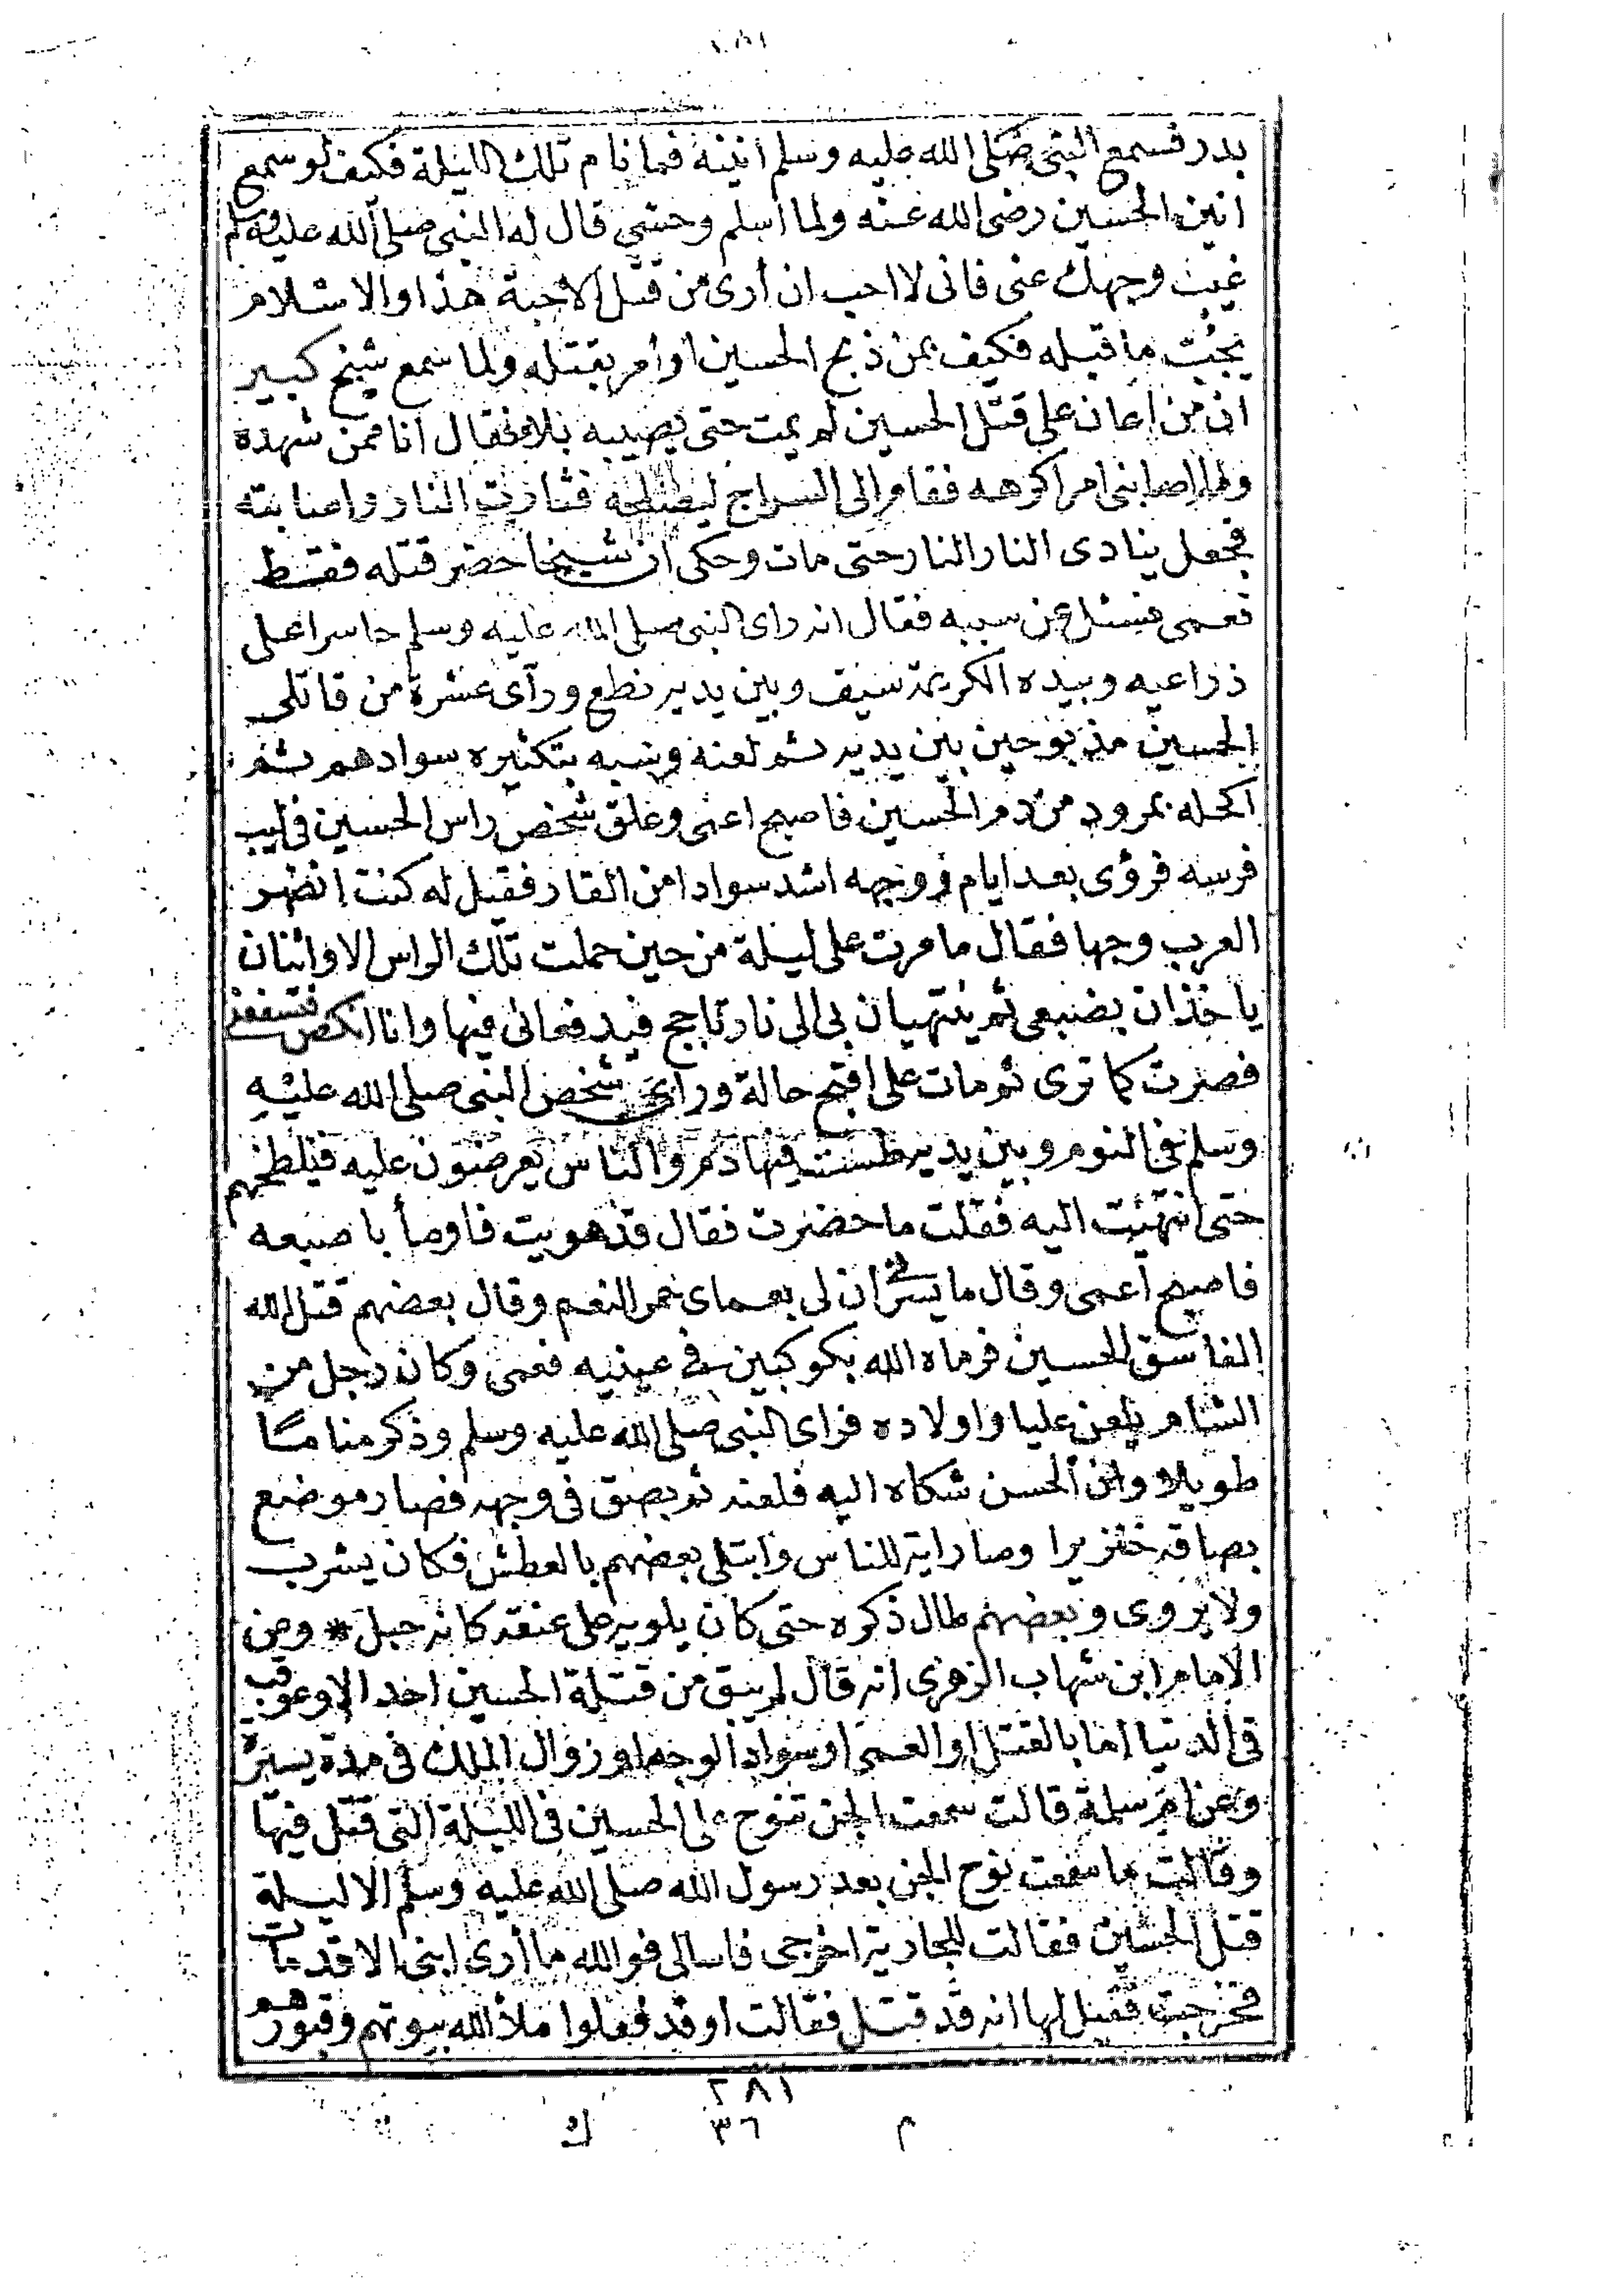 ٢٨١
بدر فسمع النبي صلى الله عليه وسلم انينه فما نام تلك الليلة فكيف لو سمع
انين الحسين رضى الله عنه ولما اسلم وحشي قال له النبى صلى الله عليه وسلم
غيب وجهك عنى فانى لا احب ان أرى من قتل الاحبة هذا والاسلام
يجب ما قبله فكيف بمن ذبح الحسين او امر بقتله ولما سمع شيخ كبير
ان من اعان على قتل الحسين لم يمت حتى يصيبه بلاء فقال انا ممن شهده
وما اصابنى امر اكرهه فقام الى السراج ليصلحه فثارت النار واصابته
فجعل ينادى النار النار حتى مات وحكى ان شيخا حضر قتله فقط
فعمى فسئل عن سببه فقال انه راى النبى صلى الله عليه وسلم حاسرا على
ذراعيه وبيده الكريمة سيف وبين يديه نطع ورآى عشرة من قاتلى
الحسين مذبوحين بين يديه ثم لعنه وسبه بتكثيره سوادهم ثم
اكحله بمرود من دم الحسين فاصبح اعمى وعلق شخص راس الحسين فى لبب
فرسه فرؤى بعد ايام ووجهه اشد سوادا من القار فقيل له كنت انضر
العرب وجها فقال ما مرت على ليلة من حين حملت تلك الراس الا واثنان
ياخذان بضبعى ثم ينتهيان بى الى نار تاجج فيدفعانى فيها وانا انكص فتسفعنى
فصرت كما ترى ثم مات على اقبح حالة ورآى شخص النبى صلى الله عليه
وسلم فى النوم وبين يديه طست فيها دم والناس يعرضون عليه فيلطخهم
حتى انتهيت اليه فقلت ما حضرت فقال قد هويت فاومأ باصبعه
فاصبح أعمى وقال ما يسرنى ان لى بعماى حمر النعم وقال بعضهم قتل الله
الفاسق الحسين فرماه الله بكوكبين فى عينيه فعمى وكان رجل من
الشام يلعن عليا واولاده فراى النبى صلى الله عليه وسلم وذكر مناما
طويلا وان الحسن شكاه اليه فلعنه ثم بصق فى وجهه فصار موضع
بصاقه خنزيرا وصار اية للناس وابتلى بعضهم بالعطش فكان يشرب
ولا يروى وبعضهم طال ذكره حتى كان يلويه على عنقه كانه حبل * وعن
الامام ابن شهاب الزهرى انه قال لم يبق من قتلة الحسين احد الا وعوقب
فى الدنيا اما بالقتل او العمى او سواد الوجه او زوال الملك فى مدة يسيرة
وعن ام سلمة قالت سمعت الجن تنوح على الحسين فى الليلة التى قتل فيها
وقالت ما سمعت نوح الجن بعد رسول الله صلى الله عليه وسلم الا ليلة
قتل الحسين فقالت للجارية اخرجى فاسالى فوالله ما أرى ابنى الا قد مات
فخرجت فقيل لها انه قد قتل فقالت اوقد فعلوا ملأ الله بيوتهم وقبورهم
٢٨١
م ٣٦ ك